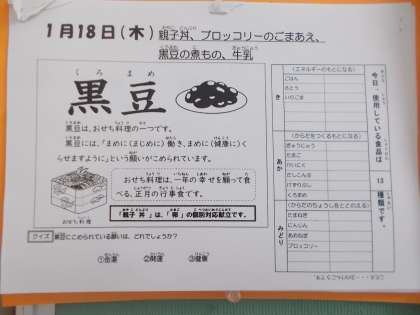 1月18日(木) 親子丼、ブロッコリーのごまあえ、
黒豆の煮もの、牛乳
くろまめ
黒豆
黒豆は、おせち料理の一つです。
黒豆には、「まめに(まじめに)働き、まめに(健康に)く
らせますように」という願いがこめられています。
おせち料理は、一年の幸せを願って食
べる、正月の行事食です。
おせち料理
「親子丼」は、「卵」の個別対応献立です。
クイズ 黒豆にこめられている願いは、どれでしょうか?
①金運 ②開運 ③健康
今日、使用している食品は
13
種類です。
き
(エネルギーのもとになる)
ごはん
さとう
あか
(からだをつくるもとになる)
ぎゅうにゅう
たまご
とりにく
くろまめ
みどり
(からだのちょうしをととのえる)
たまねぎ
にんじん
ブロッコリー